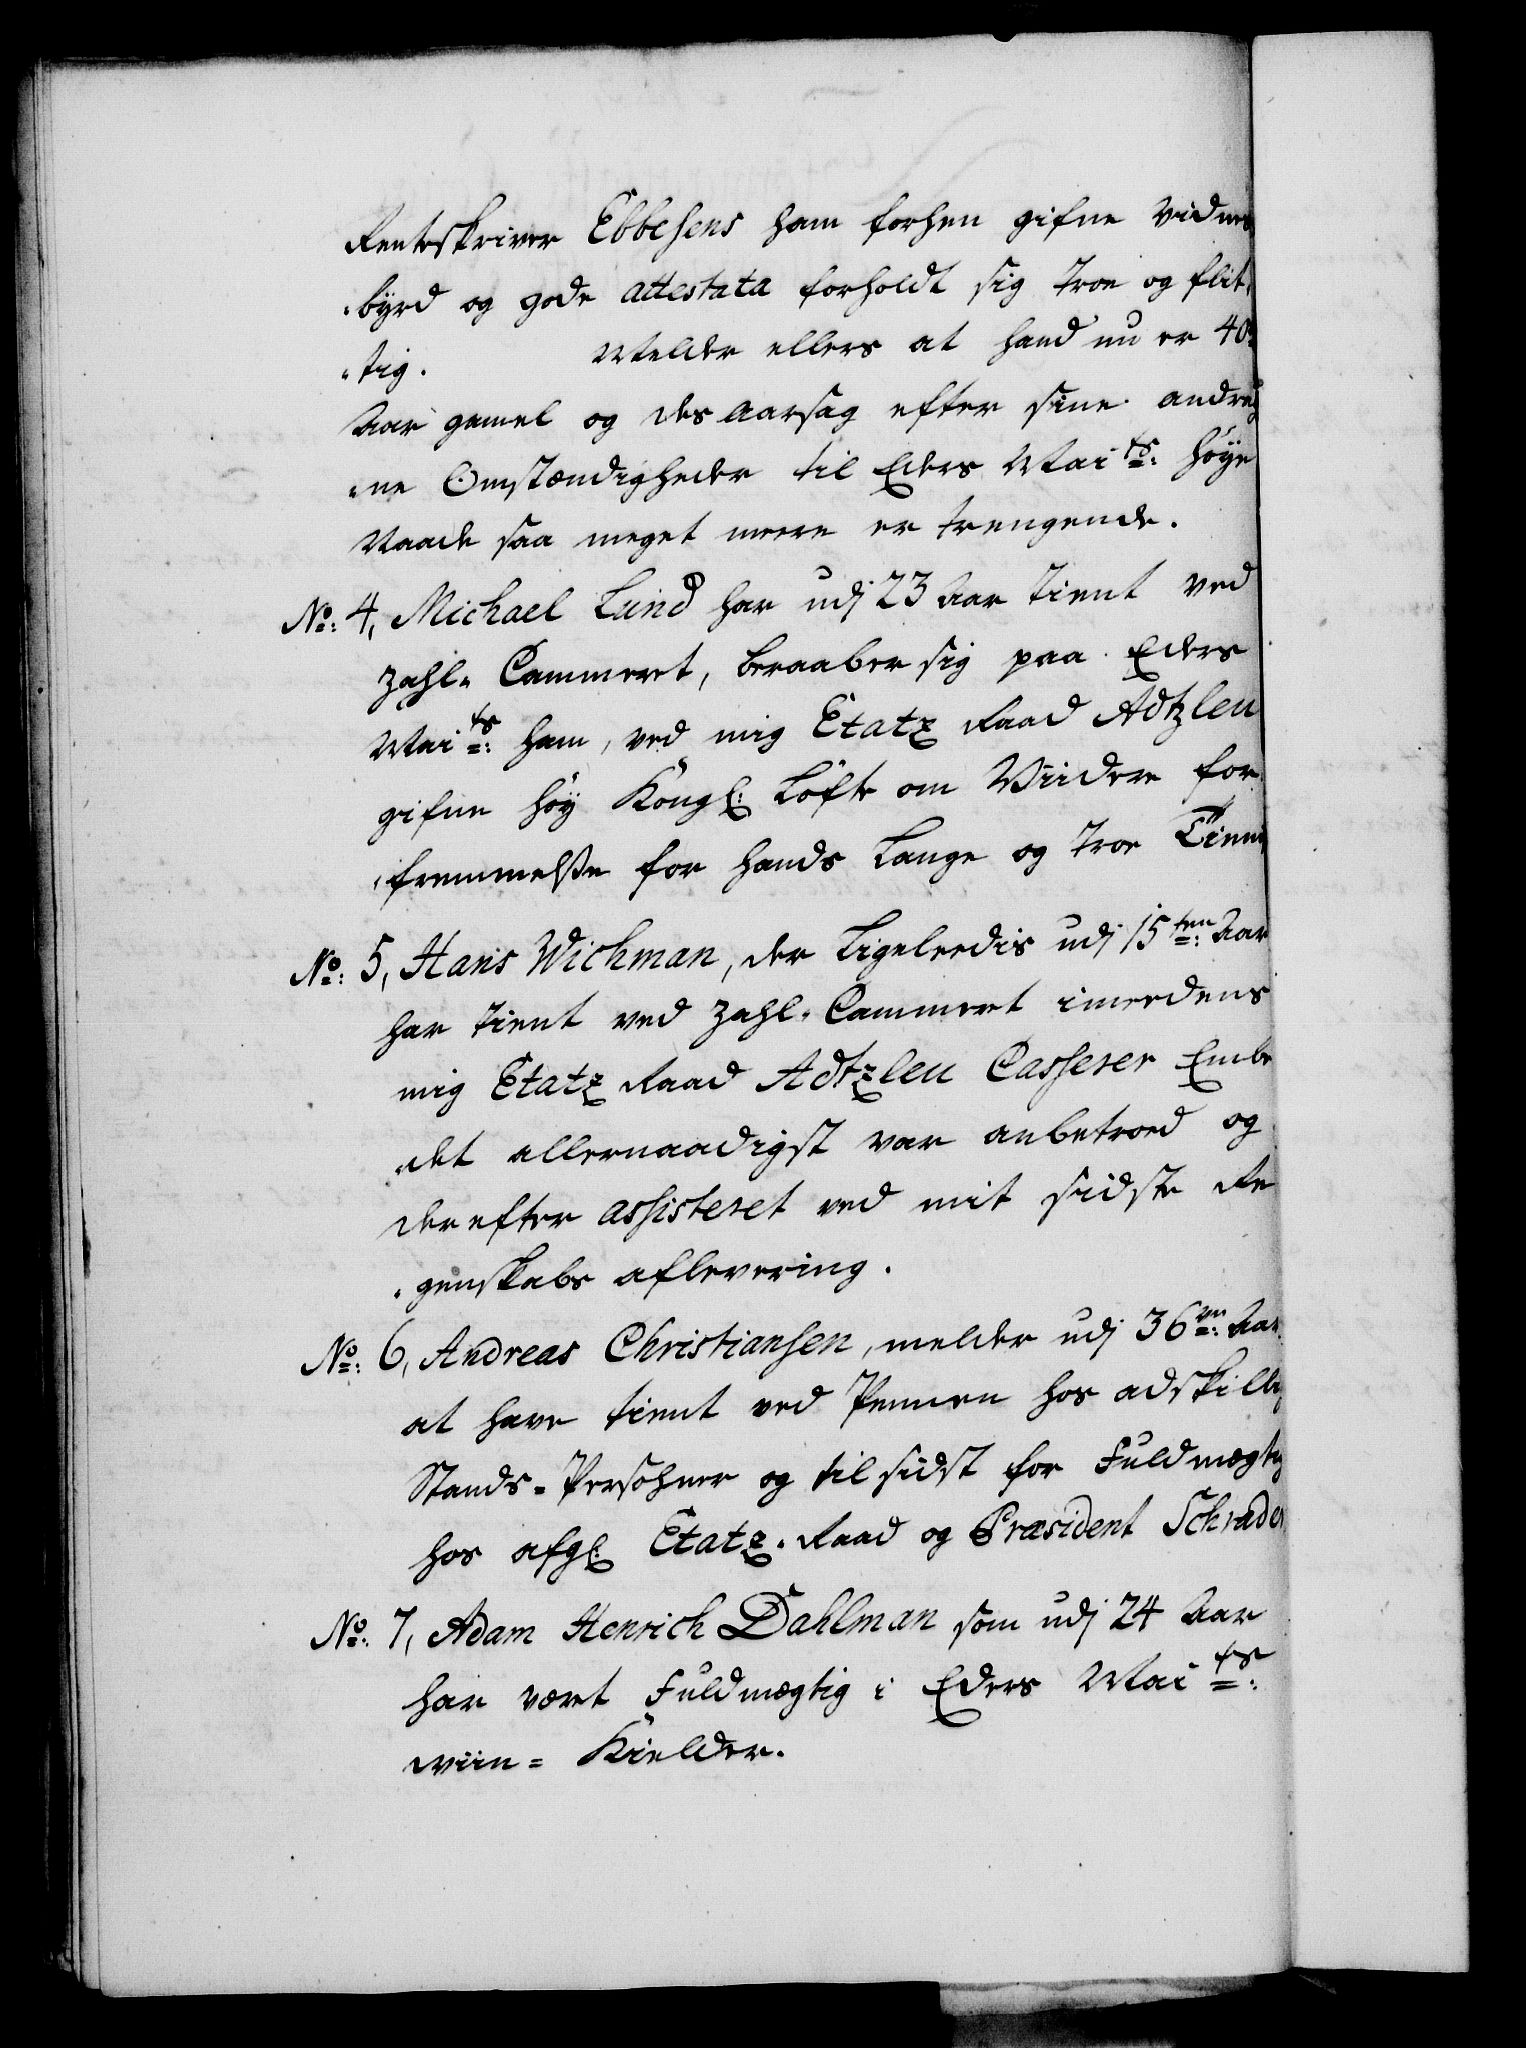 Renteskriver Ebbesens ham forhen gifne Vidnes
„byrd og gode attestata forholdt sig troe og flit„
„tig. Melder ellers at hand nu er 40
Aar gamel og des aarsag efter sine andra
„ne Omstændigheder til Eders Maits: høye
Naade saa meget meere er trengende.
No: 4, Michael Lund har udj 23 Aar tient ved
Zahl- Cammeret, beraaber sig paa Eders
Maits: ham, ved mig Etatz Raad Adtzleu
gifne høy Kongl: Løfte om Viidere for
„fremmelse for hands Lange og troe Tieni
No: 5, Hans Wichman, der Ligeleedis udj 15ten: Aar
har tient ved Zahl-Cammeret imeedens
mig Etatz Raad Adtzleu Casserer Embe
„det allernaadigst var anbetroed og
derefter assisteret ved mit sidste Re
„genskabs aflevering.
No: 6, Andreas Christiansen, melder udj 36ve: Aar
at have tient ved Pennen hos adskillig
Stands-Persohner og til sidst for Fuldmægtig
hos afgl: Etatz-Raad og Præsident Schrader
No: 7, Adam Henrich Dahlman som udj 24 Aar
har været Fuldmægtig i Eders Maits:
Viin= Kielder.